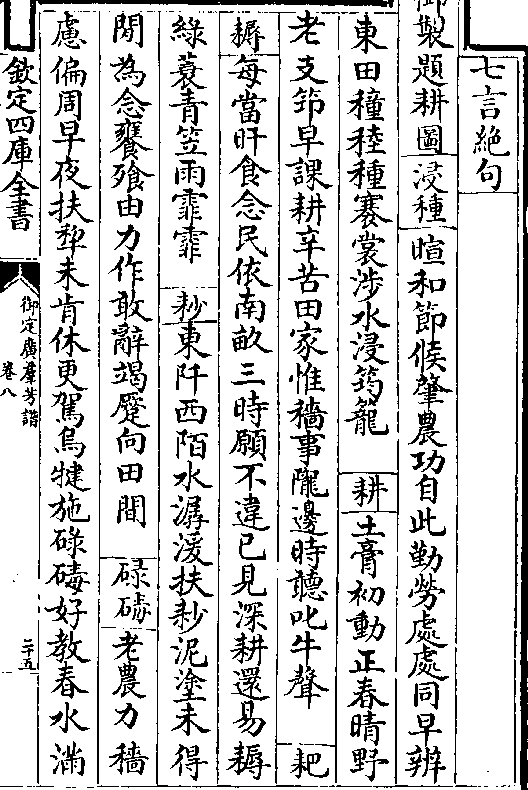 七言絶句
御製題耕圖浸種暄和節候肇農功自此勤勞處處同早辨
東田穜稑種褰裳涉水浸筠籠耕土膏初動正春晴野
老支笻早課耕辛苦田家惟穡事隴邊時聽叱牛聲耙
耨每當旰食念民依南畝三時願不違已見深耕還易耨
綠蓑青笠雨霏霏耖東阡西陌水潺湲扶耖泥塗未得
閒為念饔飱由力作敢辭竭蹷向田間碌碡老農力穡
慮偏周早夜扶犂未肯休更駕烏犍施碌碡好教春水滿
欽定四庫全書
御定廣羣芳譜
卷八
二十五